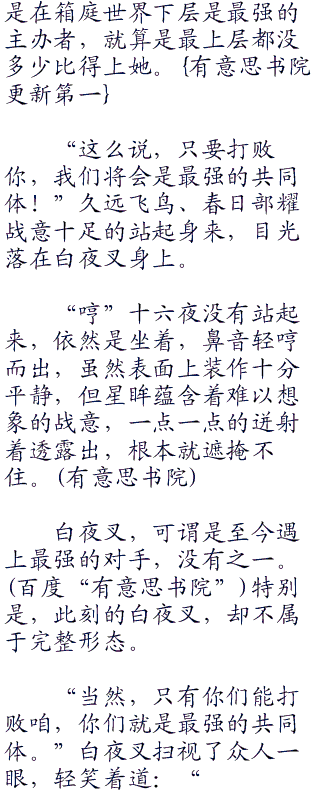 是在箱庭世界下层是最强的
主办者，就算是最上层都没
多少比得上她。{有意思书院
更新第一}
“这么说，只要打败
你，我们将会是最强的共同
体！”久远飞鸟、春日部耀
战意十足的站起身来，目光
落在白夜叉身上。
“哼”十六夜没有站起
来，依然是坐着，鼻音轻哼
而出，虽然表面上装作十分
平静，但星眸蕴含着难以想
象的战意，一点一点的迸射
着透露出，根本就遮掩不
住。(有意思书院)
白夜叉，可谓是至今遇
上最强的对手，没有之一。
(百度“有意思书院”)特别
是，此刻的白夜叉，却不属
于完整形态。
“当然，只有你们能打
败咱，你们就是最强的共同
体。”白夜叉扫视了众人一
眼，轻笑着道：“